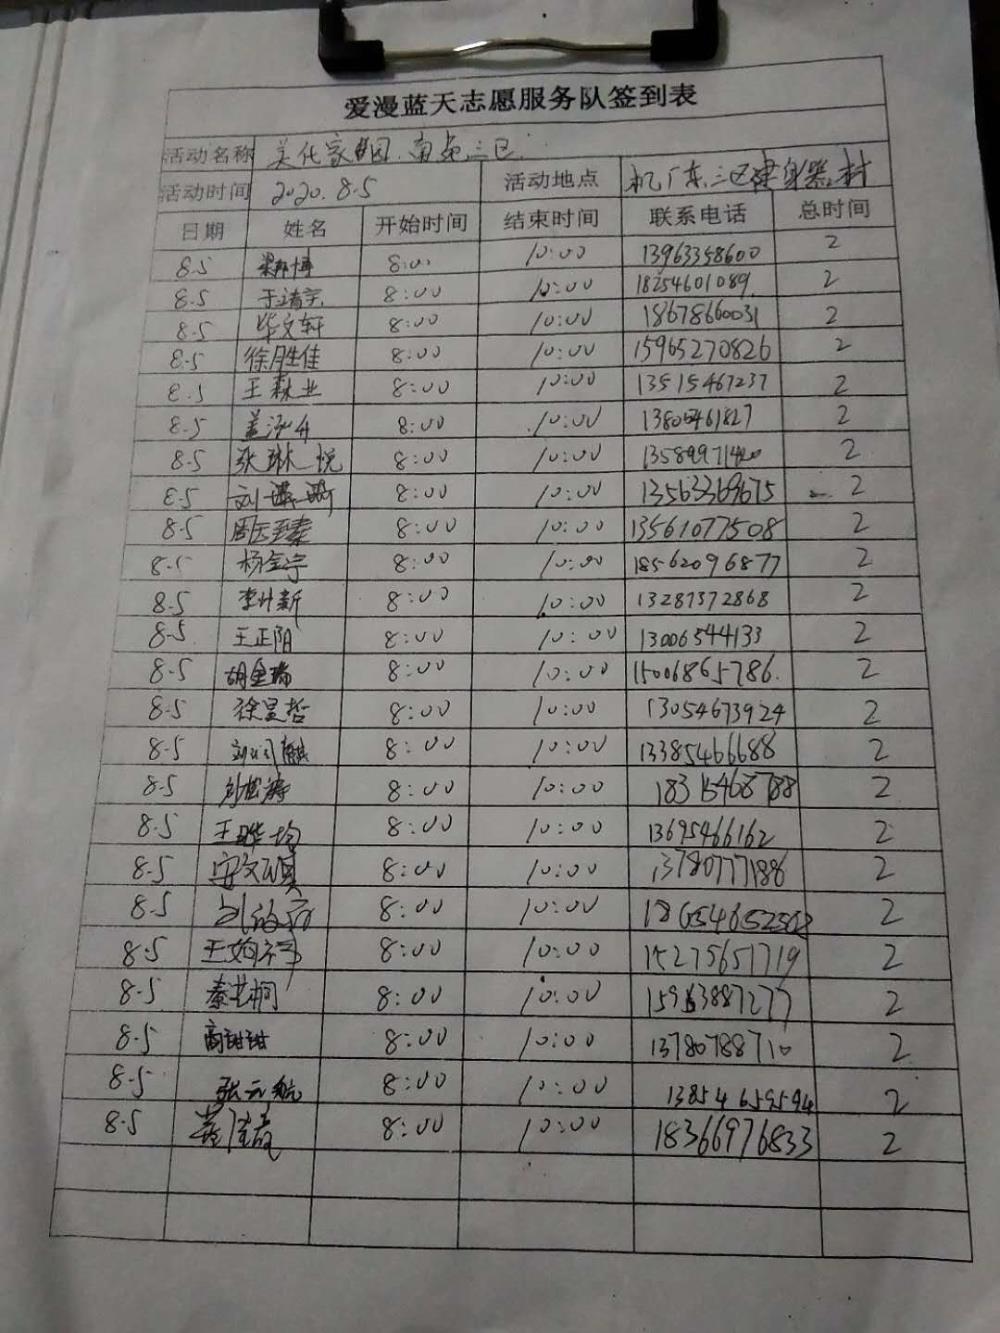 爱漫蓝天志愿服务队签到表
活动名称 美化家园.南苑三区.
活动时间 2020.8.5 活动地点 机厂东三区健身器材
日期 姓名 开始时间 结束时间 联系电话 总时间
8.5 8:00 10:00 13963358600 2
8.5 于靖宗 8:00 10:00 18254601089 2
8.5 毕文轩 8:00 10:00 18678660031 2
8.5 徐胜佳 8:00 10:00 15965270826 2
8.5 王森业 8:00 10:00 13515467237 2
8.5 盖泓升 8:00 10:00 13805461827 2
8.5 张琳悦 8:00 10:00 2
8.5 8:00 10:00 13563369675 2
8.5 8:00 10:00 13561077508 2
8.5 杨金宇 8:00 10:00 18562096877 2
8.5 李叶新 8:00 10:00 13287372868 2
8.5 王正阳 8:00 10:00 13006544133 2
8.5 胡金瑞 8:00 10:00 15006865786. 2
8.5 徐昊哲 8:00 10:00 13054673924 2
8.5 8:00 10:00 13385466688 2
8.5 8:00 10:00 18315468788 2
8.5 王晔均 8:00 10:00 13695466162 2
8.5 安文颂 8:00 10:00 13780777188 2
8.5 8:00 10:00 2
8.5 8:00 10:00 15275651719 2
8.5 秦艺桐 8:00 10:00 15963887277 2
8.5 商甜甜 8:00 10:00 13780788710 2
8.5 张元航 8:00 10:00 13854659594 2
8.5 8:00 10:00 18366976833 2